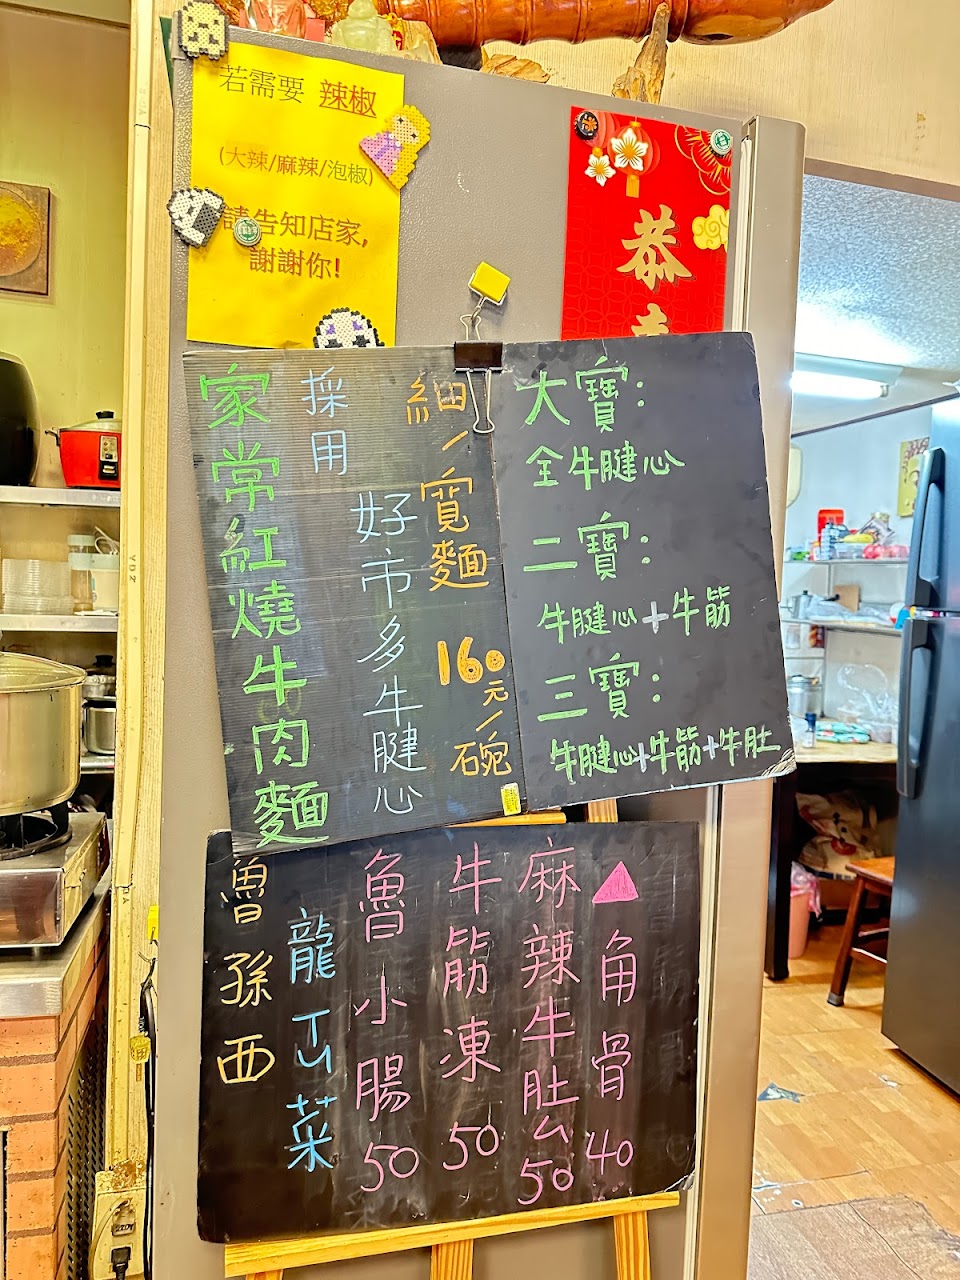 若需要 辣椒
(大辣/麻辣/泡椒)
請告知店家,
謝謝你!
恭
家常紅燒牛肉麵
採用
好市多牛腱心
細/寬麵
160元/碗
大寶:
全牛腱心
二寶:
牛腱心+牛筋
三寶:
牛腱心+牛筋+牛肚
▲角骨40
麻辣牛肚ㄙ50
牛筋凍50
魯小腸50
龍ㄒㄩ菜
魯孫西